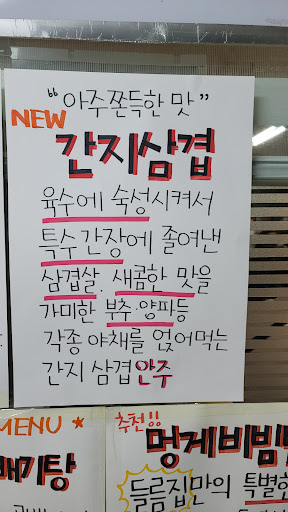 “아주쫀득한 맛”
NEW
간지삼겹
육수에 숙성시켜서
특수 간장에 졸여낸
삼겹살. 새콤한 맛을
가미한 부추·양파등
각종 야채를 얹어먹는
간지 삼겹 안주
MENU ★
배기탕
추천!!
멍게비빔
들름집만의 특별한